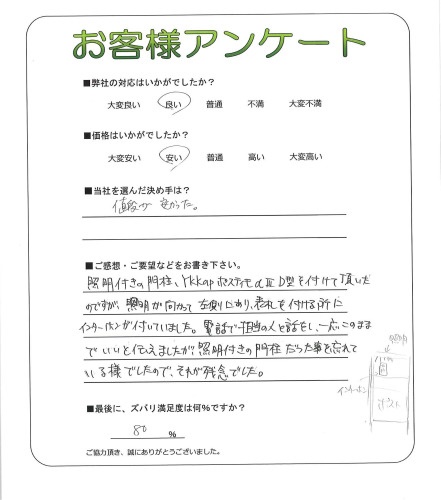 お客様アンケート
■弊社の対応はいかがでしたか？
大変良い 良い 普通 不満 大変不満
■価格はいかがでしたか？
大変安い 安い 普通 高い 大変高い
■当社を選んだ決め手は？
値段が安かった。
■ご感想・ご要望などをお書き下さい。
照明付きの門柱、Ykkap ポスティモαⅡD型を付けて頂いた
のですが、照明が向かって左側にあり、表札を付ける所に
インターホンが付いていました。電話で担当の人と話をし、一応このまま
でいいと伝えましたが、照明付きの門柱だった事を忘れて
いる様でしたので、それが残念でした。
照明
インターホン
ポスト
■最後に、ズバリ満足度は何％ですか？
80 %
ご協力頂き、誠にありがとうございました。